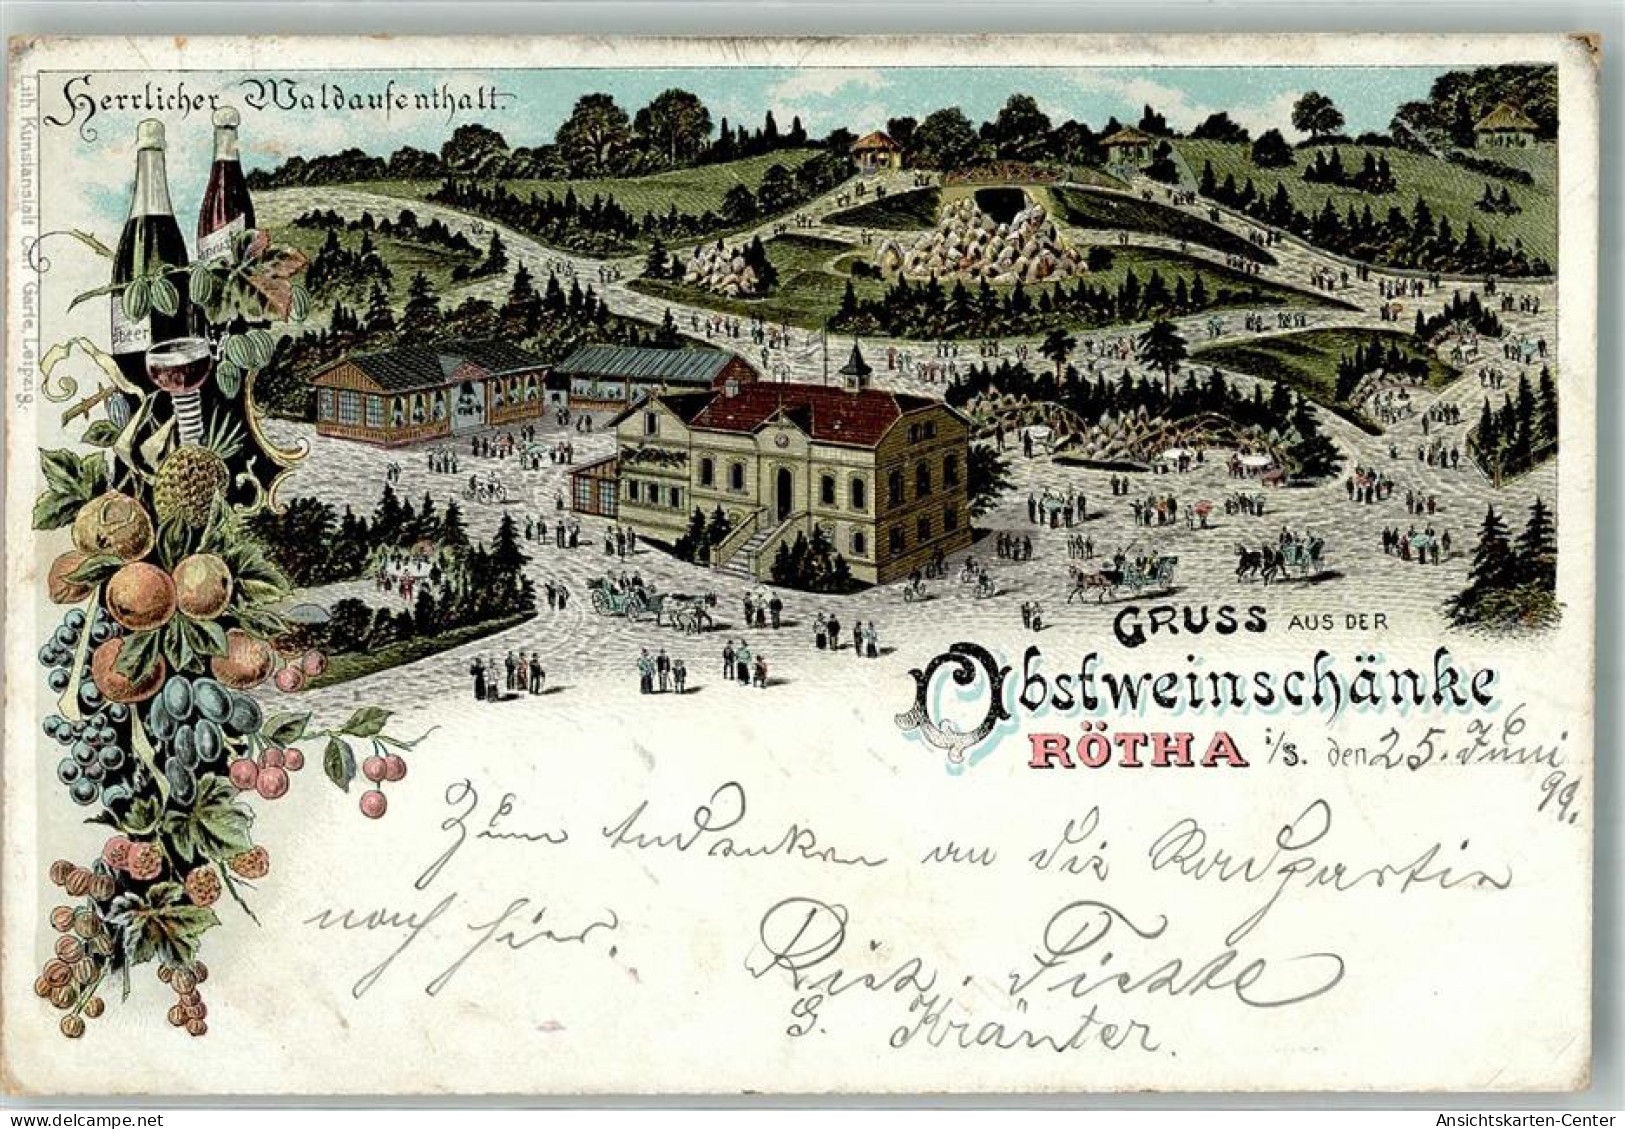 Herrlicher Waldaufenthalt.
Lith. Kunstanstalt Carl Garte, Leipzig.
GRUSS AUS DER
Obstweinschänke
RÖTHA i/S. den 25. Juni
99.
Zum Andenken an die Radpartie
nach hier.
G. Kräuter.
Ansichtskarten-Center